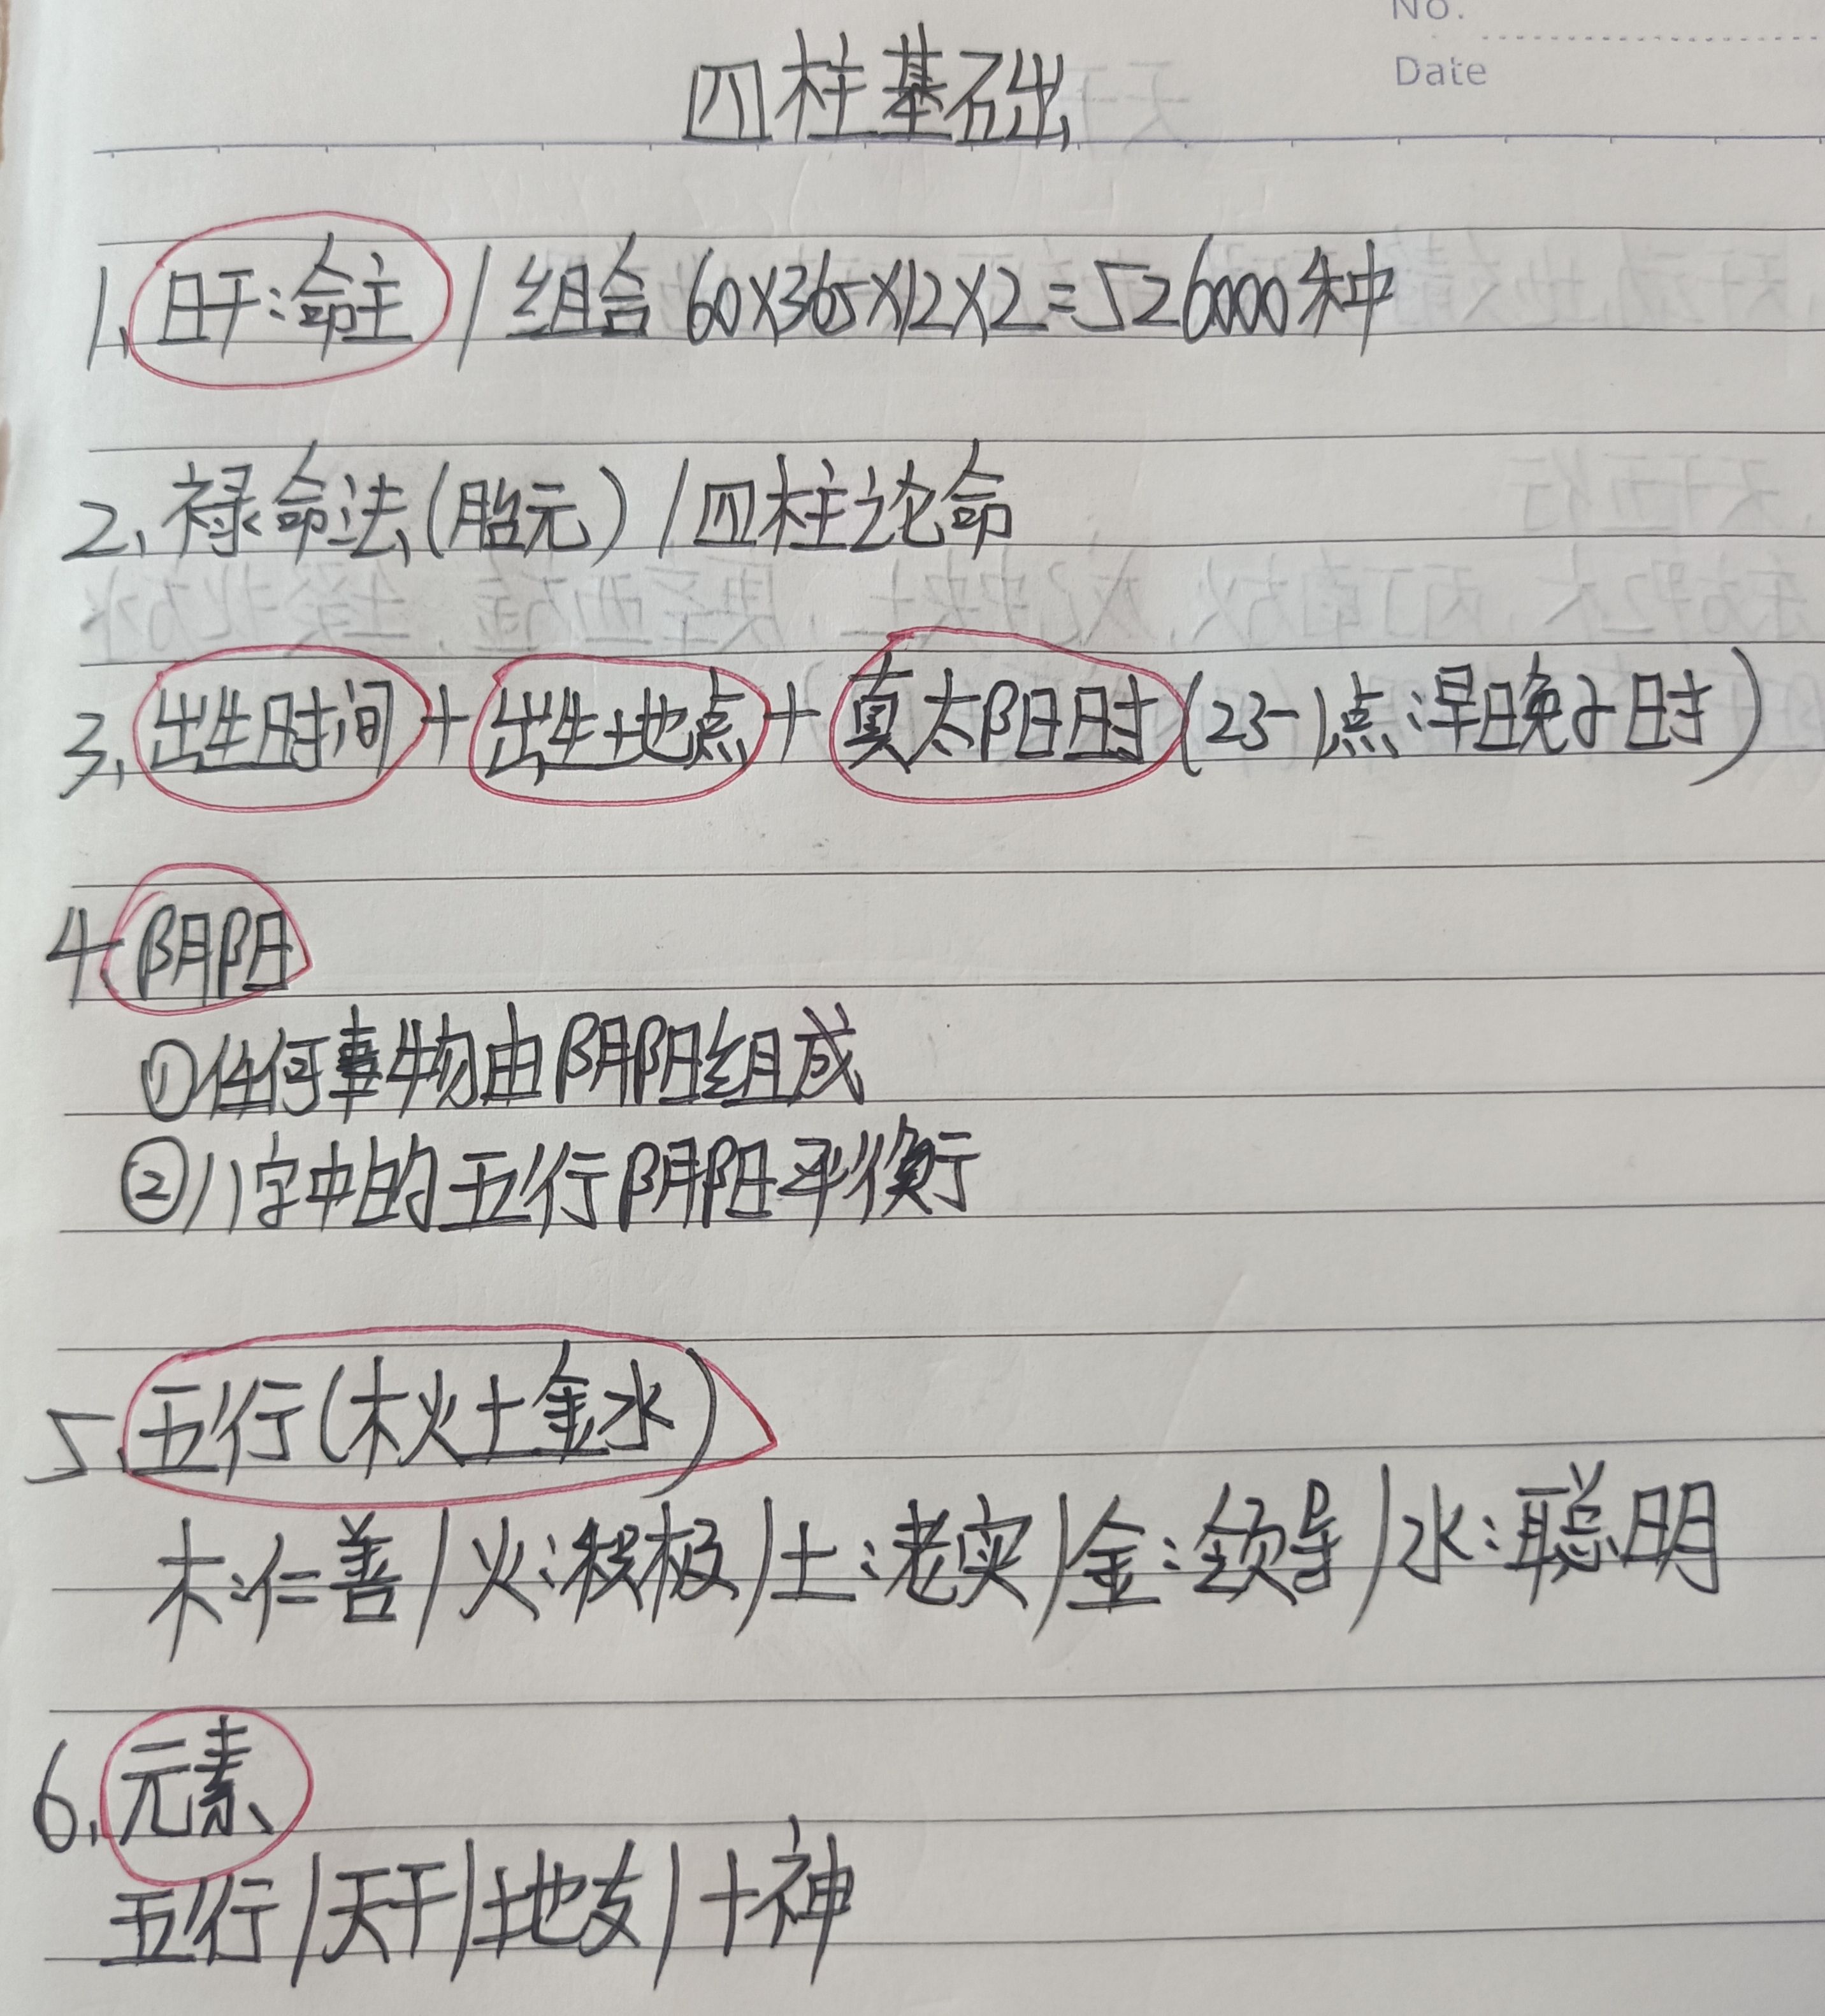 No.
Date
四柱基础
1、日干：命主 / 组合 60×365×12×2=526000种
2、禄命法(胎元) / 四柱论命
3、出生时间+出生地点+真太阳时(23-1点：早晚子时)
4、阴阳
①任何事物由阴阳组成
②八字中的五行阴阳平衡
5、五行(木火土金水)
木：仁善/火：积极/土：老实/金：领导/水：聪明
6、元素
五行/天干/地支/十神